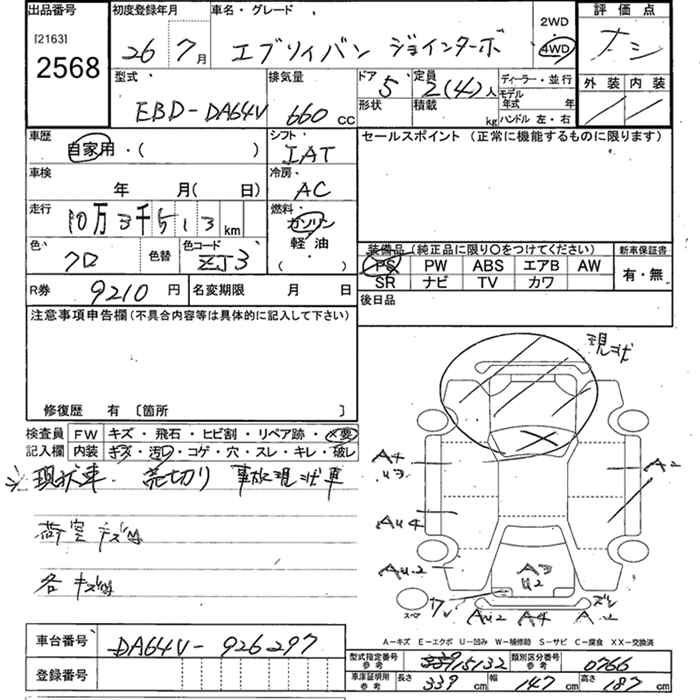 出品番号 初度登録年月 車名・グレード 2WD 評価点
[2163] 26 7月 エブリィバン ジョインターボ 4WD ナシ
2568 型式・ 排気量 ドア 定員 ディーラー・並行 外装 内装
EBD-DA64V 660 cc 5 2(4)人 モデル年式 年
形状 積載 kg ハンドル 左・右
車歴 シフト セールスポイント (正常に機能するものに限ります)
自家用・( ) IAT
車検 冷房・
年 月( 日) AC
走行 燃料
10万3千513km ガソリン
色・ 色替 色コード 軽油 装備品(純正品に限り○をつけてください) 新車保証書
クロ ZJ3 ( ) PS PW ABS エアB AW 有・無
SR ナビ TV カワ
R券 9210円 名変期限 月 日 後日品
注意事項申告欄(不具合内容等は具体的に記入して下さい)
現状
修復歴 有 〔箇所 〕
検査員 FW キズ・飛石・ヒビ割・リペア跡・×要
記入欄 内装 キズ・汚レ・コゲ・穴・スレ・キレ・破レ
現状車. 売切り 事故現状車
A4
U3
A2
荷室キズ凹
AU4
各キズ凹
AU2
A3
U2
スペア
AU2 A4
A-キズ E-エクボ U-凹み W-補修跡 S-サビ C-腐食 XX-交換済
車台番号 DA64V-926297 型式指定番号 参考 15132 類別区分番号 参考 0766
登録番号 車庫証明用 参考 長さ 339cm 幅 147cm 高さ 187cm